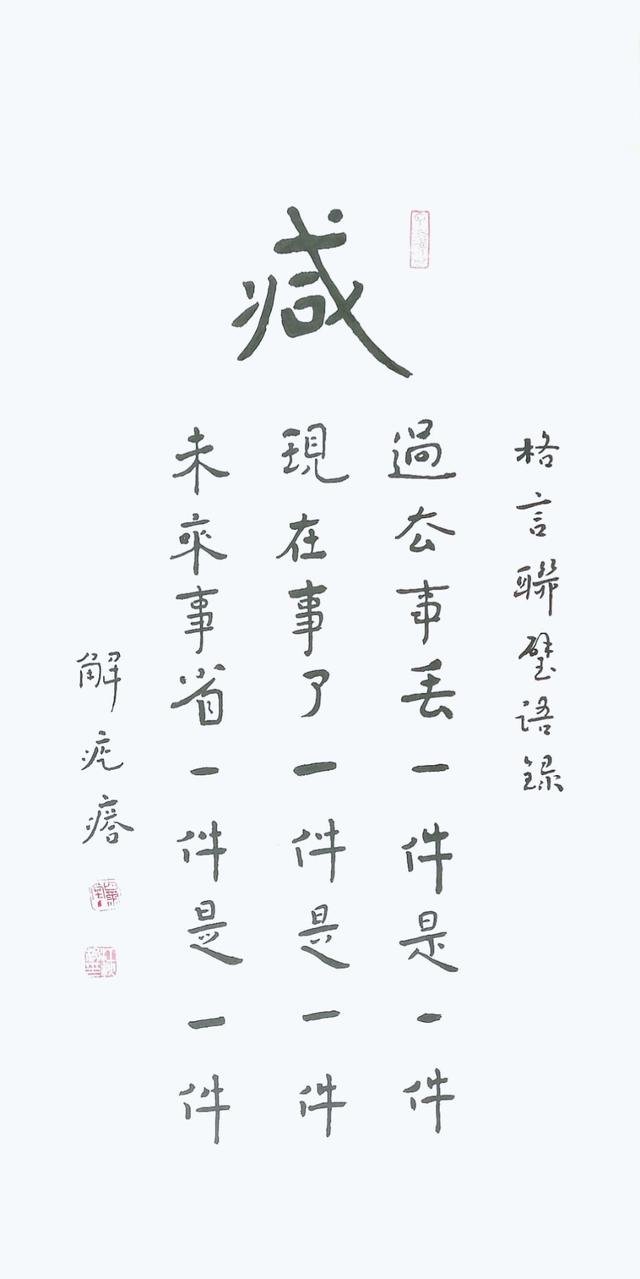 減
格言聯璧語録
過去事丢一件是一件
現在事了一件是一件
未來事省一件是一件
解疙瘩